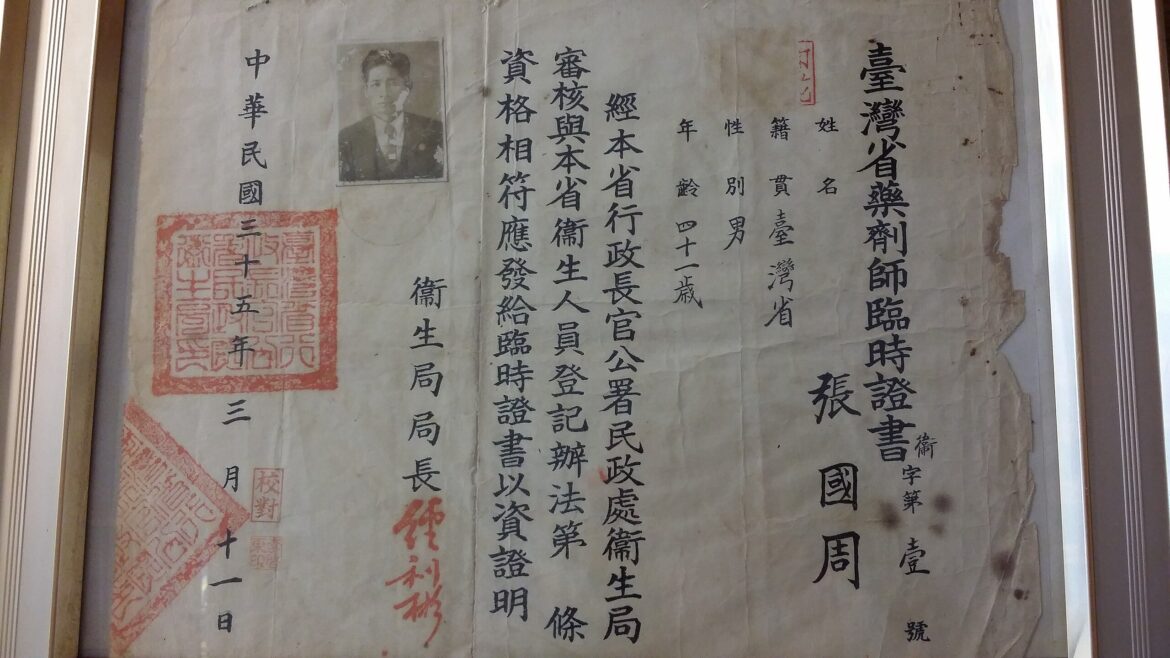 臺灣省藥劑師臨時證書
衞字第壹號
姓名 張國周
籍貫臺灣省
性別男
年齡四十一歲
經本省行政長官公署民政處衞生局
審核與本省衞生人員登記辦法第 條
資格相符應發給臨時證書以資證明
衞生局局長 經利彬
中華民國三十五年三月十一日
校對